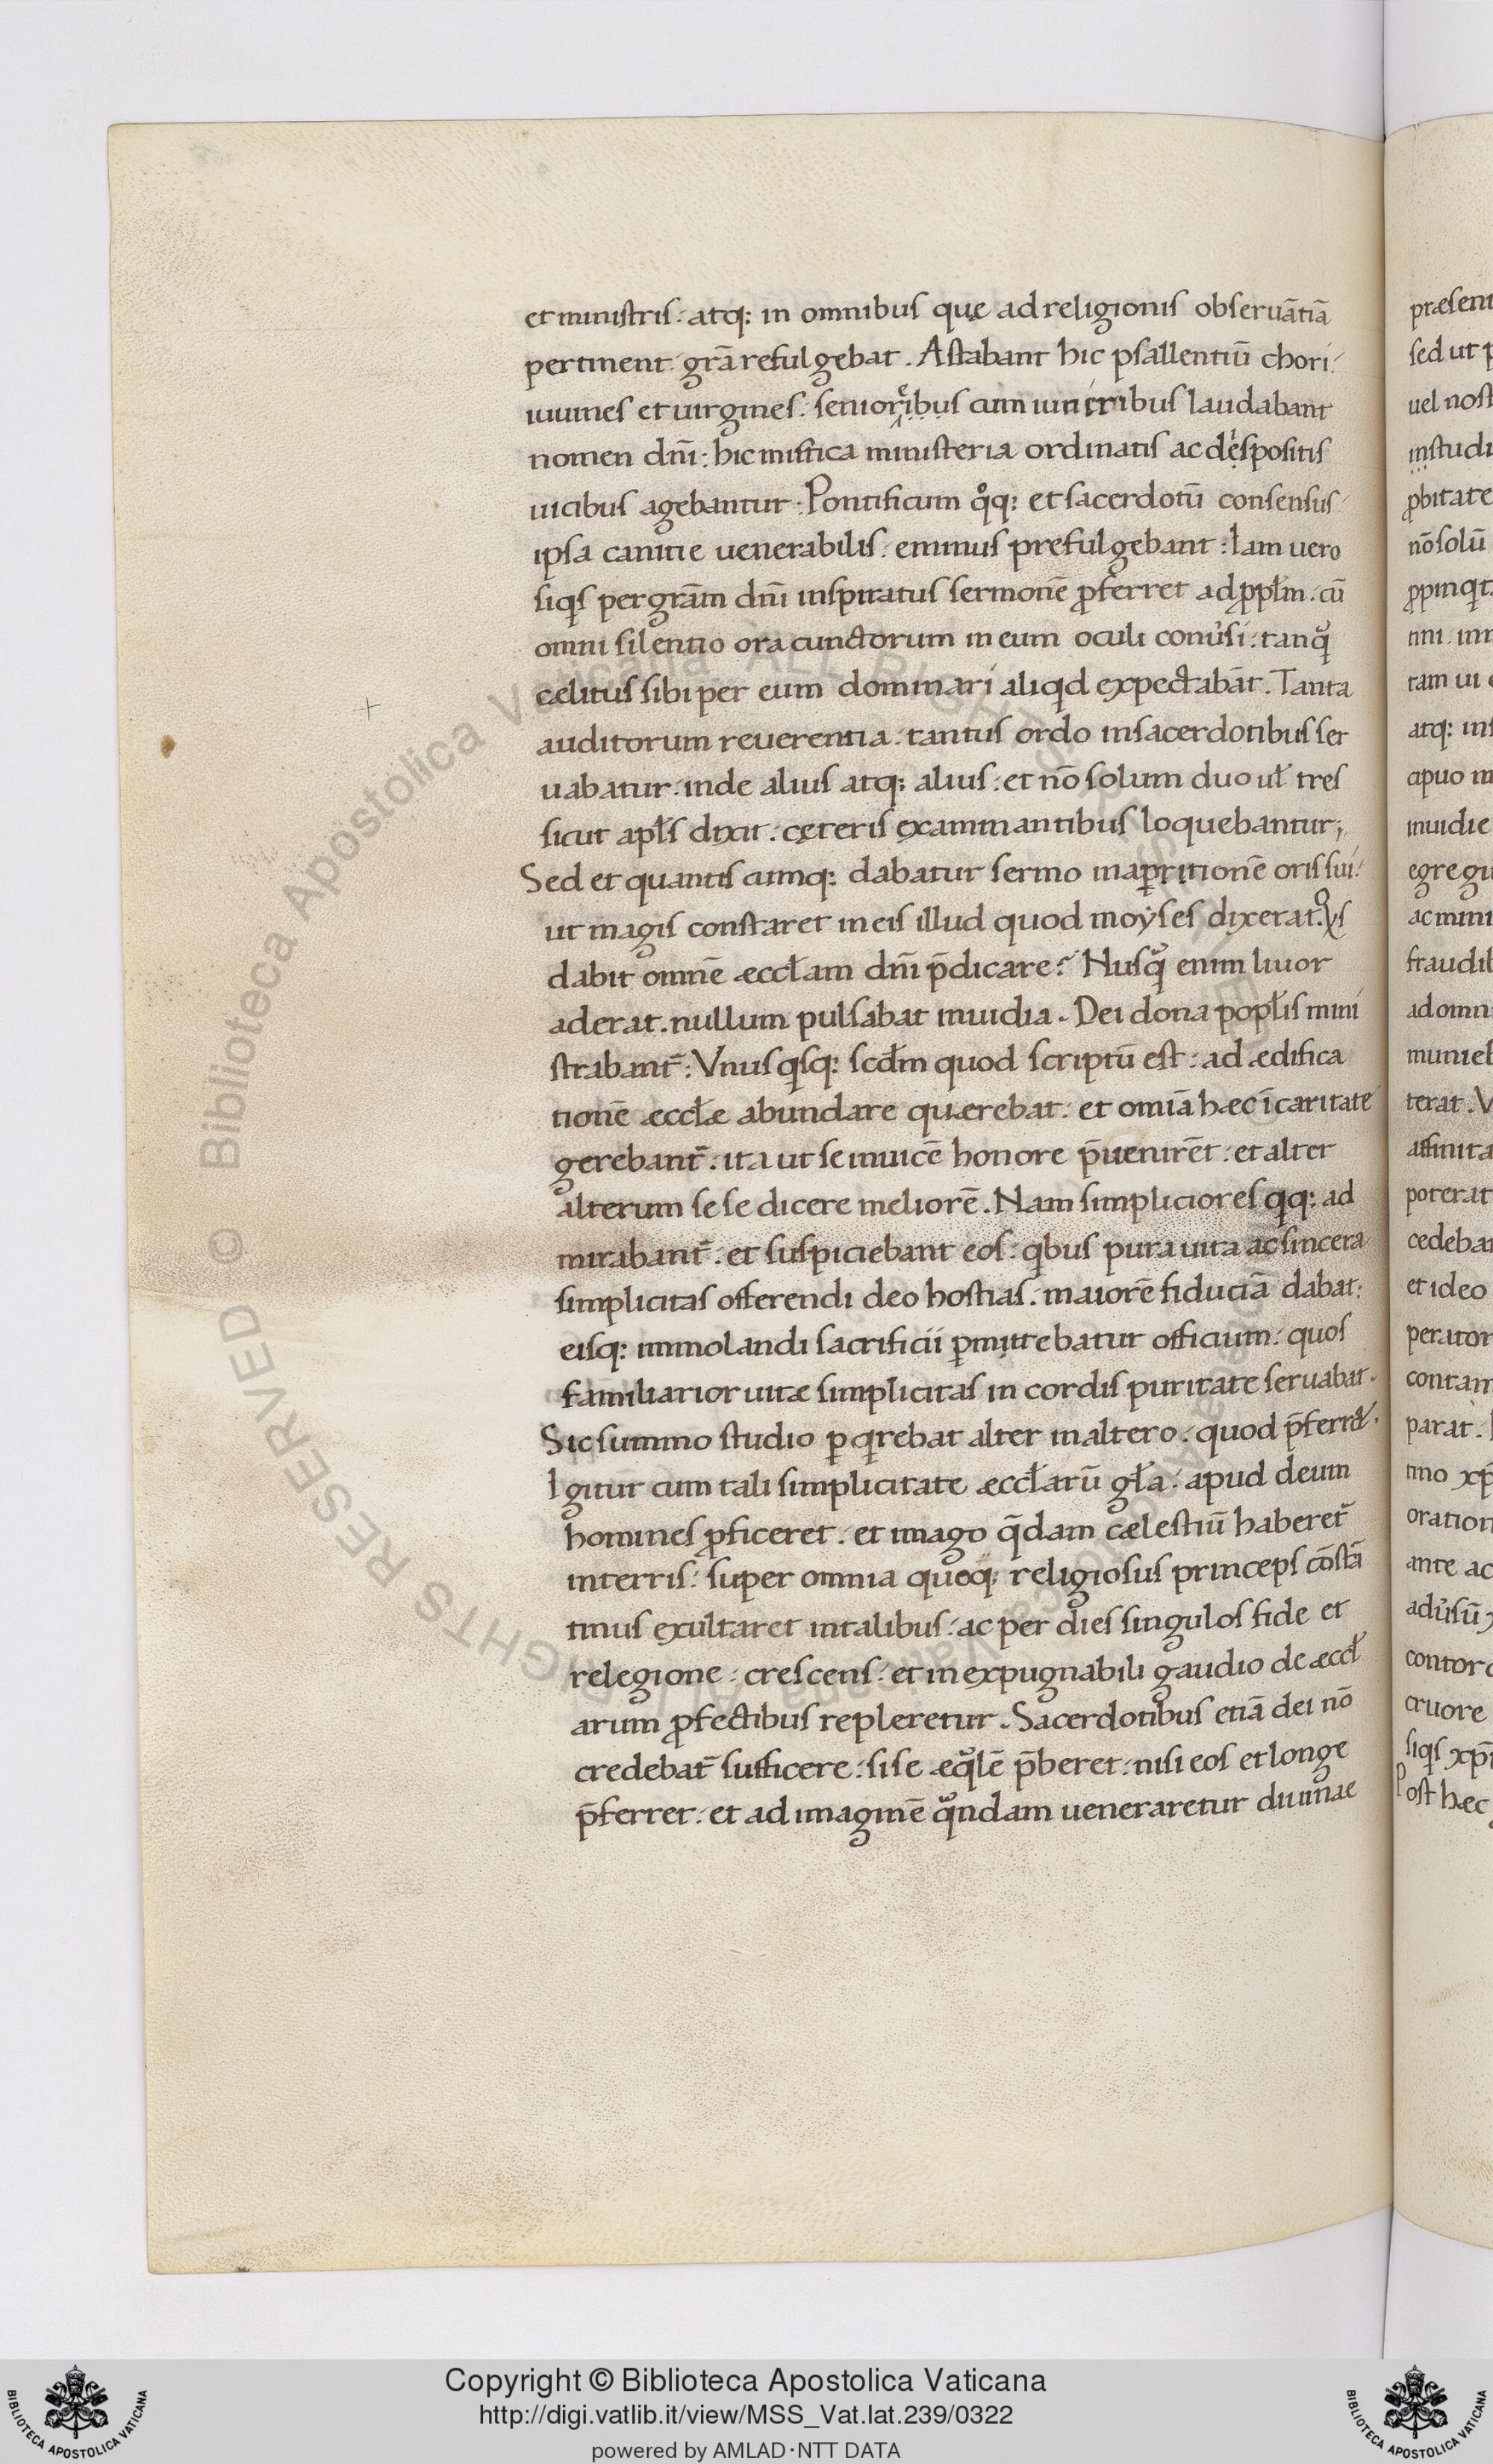 et ministris. atq; in omnibus quę ad religionis obseruātiā
pertinent. grā refulgebat. Astabant hic psallentiū chori.
iuuines et uirgines. senioribus cum iunioribus laudabant
nomen dn̄i. hic mistica ministeria ordinatis ac despositis
uicibus agebantur. Pontificum qͦq; et sacerdotū consensus
ipsa canitie uenerabilis. eminus prefulgebant. Iam uero
siqis per grām dn̄i inspiratus sermonē ꝓferret ad ꝓpłm. cū
omni silentio ora cunctorum in eum oculi conuͥsi. tanqͣ̄
cælitus sibi per eum dominari aliqid expectabāt. Tanta
auditorum reuerentia. tantus ordo in sacerdotibus ser
uabatur. inde alius atq; alius. et nō solum duo uł tres
sicut apłs dixit. cęteris examinantibus loquebantur;
Sed et quantis cumq; dabatur sermo in apꝑitionē oris sui.
ut magis constaret in eis illud quod moẏses dixerat. Qͦs
dabit omnē æccłam dn̄i p̄dicare? Nusqͣ̄ enim liuor
aderat. nullum pulsabat inuidia. Dei dona popłis mini
strabant̄. Vnus qisq; scd̄m quod scriptū est. ad ædifica
tionē æccłæ abundare quærebat. et omīa hæc ī caritate
gerebant̄. ita ut se inuicē honore p̄uenirēt. et alter
alterum se se dicere meliorē. Nam simpliciores qiq; ad
mirabant̄. et suspiciebant eos. qibus pura uita ac sincera
simplicitas offerendi deo hostias. maiorē fiduciā dabat.
eisq; immolandi sacrificii ꝑmittebatur officium. quos
familiarior uitæ simplicitas in cordis puritate seruabat.
Sic summo studio ꝑqirebat alter in altero. quod p̄ferr&.
Igitur cum tali simplicitate æccłarū gła. apud deum
homines ꝓficeret. et imago q̄dam cælestiū haberet̄
in terris. super omnia quoq; religiosus princeps cōstā
tinus exultaret in talibus. ac per dies singulos fide et
relegione. crescens. et inexpugnabili gaudio de æccł
arum ꝓfectibus repleretur. Sacerdotibus etiā dei nō
credebat̄ sufficere. si se æqͣlē p̄beret. nisi eos et longe
p̄ferret. et ad imaginē qͣndam ueneraretur diuinae
præsent
sed ut p
uel nost
in studi
ꝓbitate
nō solū
ꝓpinqit
atq; ins
inuidie
egregii
ac mini
fraudib
ad omn
munieb
terat. V
affinita
poterat
cedeba
et ideo
perator
contam
parat.
oration
ante ac
contor
cruore
siqis xp̄
Post hæc
© Biblioteca Apostolica Vaticana ALL RIGHTS RESERVED
Copyright © Biblioteca Apostolica Vaticana
http://digi.vatlib.it/view/MSS_Vat.lat.239/0322
powered by AMLAD·NTT DATA
BIBLIOTECA APOSTOLICA VATICANA
BIBLIOTECA APOSTOLICA VATICANA